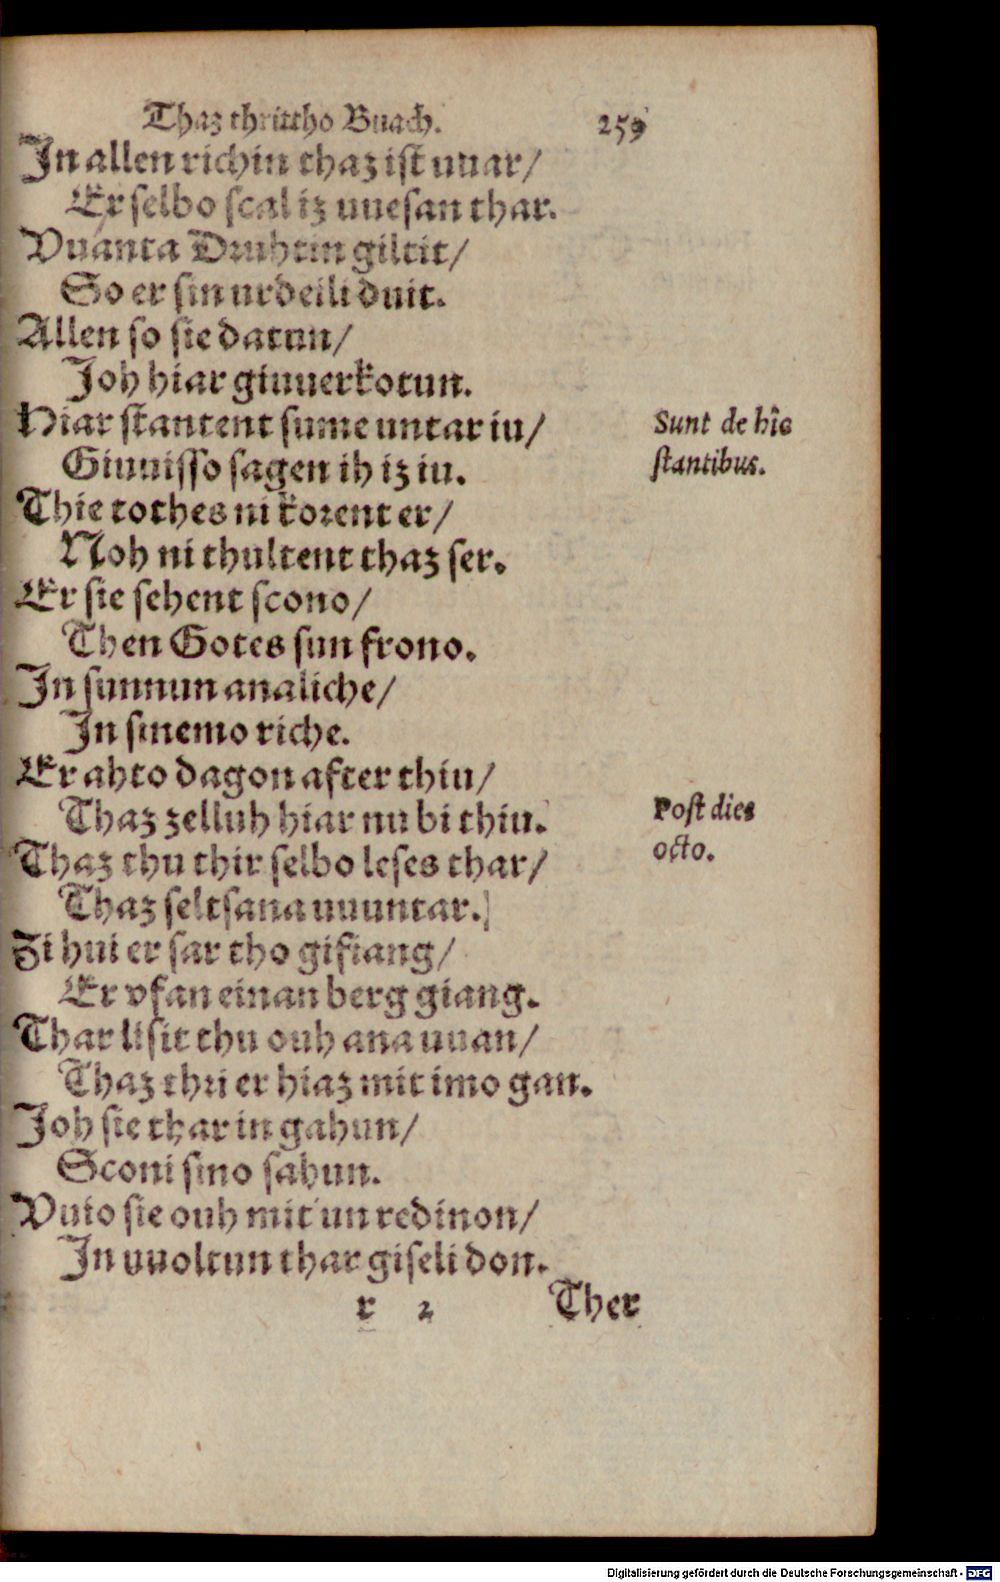 Thaz thrittho Buach. 259
In allen richin thaz ist uuar/
Er selbo scal iz uuesan thar.
Vuanta Druhtin giltit/
So er sin urdeili duit.
Allen so sie datun/
Joh hiar giuuerkotun.
Hiar stantent sume untar iu/
Giuuisso sagen ih iz iu.
Sunt de hîc
stantibus.
Thie tothes ni korent er/
Noh ni thultent thaz ser.
Er sie sehent scono/
Then Gotes sun frono.
In sunnun analiche/
In sinemo riche.
Er ahto dagon after thiu/
Thaz zelluh hiar nu bi thiu.
Post dies
octo.
Thaz thu thir selbo leses thar/
Thaz seltsana uuuntar.
Zi hui er sar tho gifiang/
Er vfan einan berg giang.
Thar lisit thu ouh ana uuan/
Thaz thri er hiaz mit imo gan.
Joh sie thar in gahun/
Sconi sino sahun.
Vuio sie ouh mit un redinon/
In uuoltun thar giselidon.
r 2 Ther
Digitalisierung gefördert durch die Deutsche Forschungsgemeinschaft - DFG